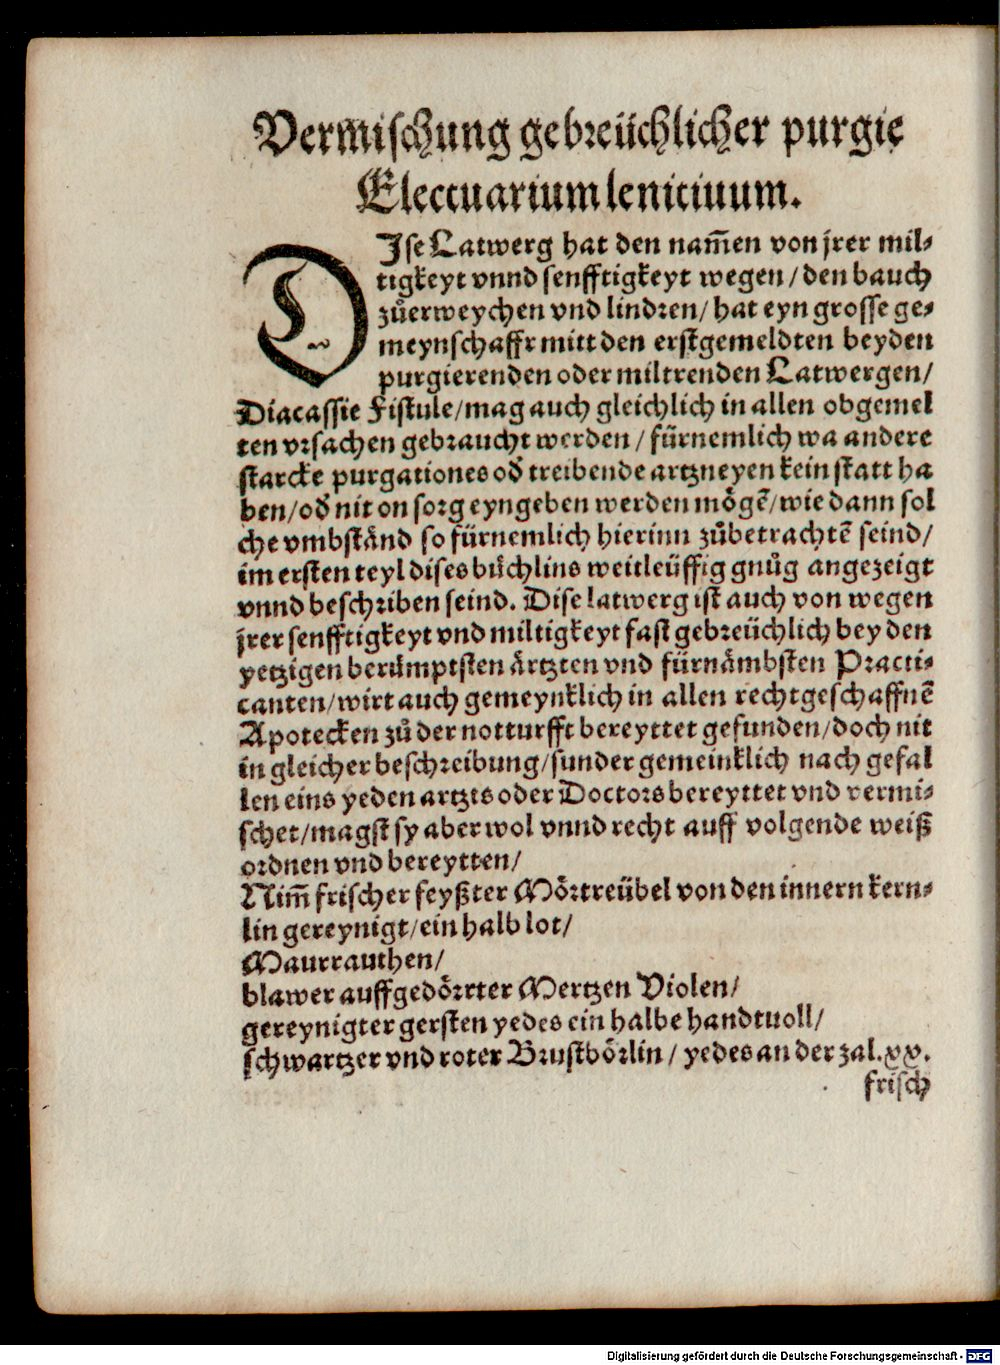 Vermischung gebreüchlicher purgie
Electuarium lenitiuum.
DIse Latwerg hat den nam̃en von jrer mil⸗
tigkeyt vnnd senfftigkeyt wegen / den bauch
zůerweychen vnd lindren / hat eyn grosse ge⸗
meynschafft mitt den erstgemeldten beyden
purgierenden oder miltrenden Latwergen /
Diacassie Fistule / mag auch gleichlich in allen obgemel
ten vrsachen gebraucht werden / fürnemlich wa andere
starcke purgationes od̕ treibende artzneyen kein statt ha
ben / od̕ nit on sorg eyngeben werden mögẽ / wie dann sol
che vmbständ so fürnemlich hierinn zůbetrachtẽ seind /
im ersten teyl dises büchlins weitleüffig gnůg angezeigt
vnnd beschriben seind. Dise latwerg ist auch von wegen
jrer senfftigkeyt vnd miltigkeyt fast gebreüchlich bey den
yetzigen berümptsten ärtzten vnd fürnämbsten Practi⸗
canten / wirt auch gemeynklich in allen rechtgeschaffnẽ
Apotecken zů der notturfft bereyttet gefunden / doch nit
in gleicher beschreibung / sunder gemeinklich nach gefal
len eins yeden artzts oder Doctors bereyttet vnd vermi⸗
schet / magst sy aber wol vnnd recht auff volgende weiß
ordnen vnd bereytten /
Nim̃ frischer feyßter Mörtreübel von den innern kern⸗
lin gereynigt / ein halb lot /
Maurrauthen /
blawer auffgedörrter Mertzen Violen /
gereynigter gersten yedes ein halbe handtuoll /
schwartzer vnd roter Brustbörlin / yedes an der zal. xx.
frisch
Digitalisierung gefördert durch die Deutsche Forschungsgemeinschaft - DFG